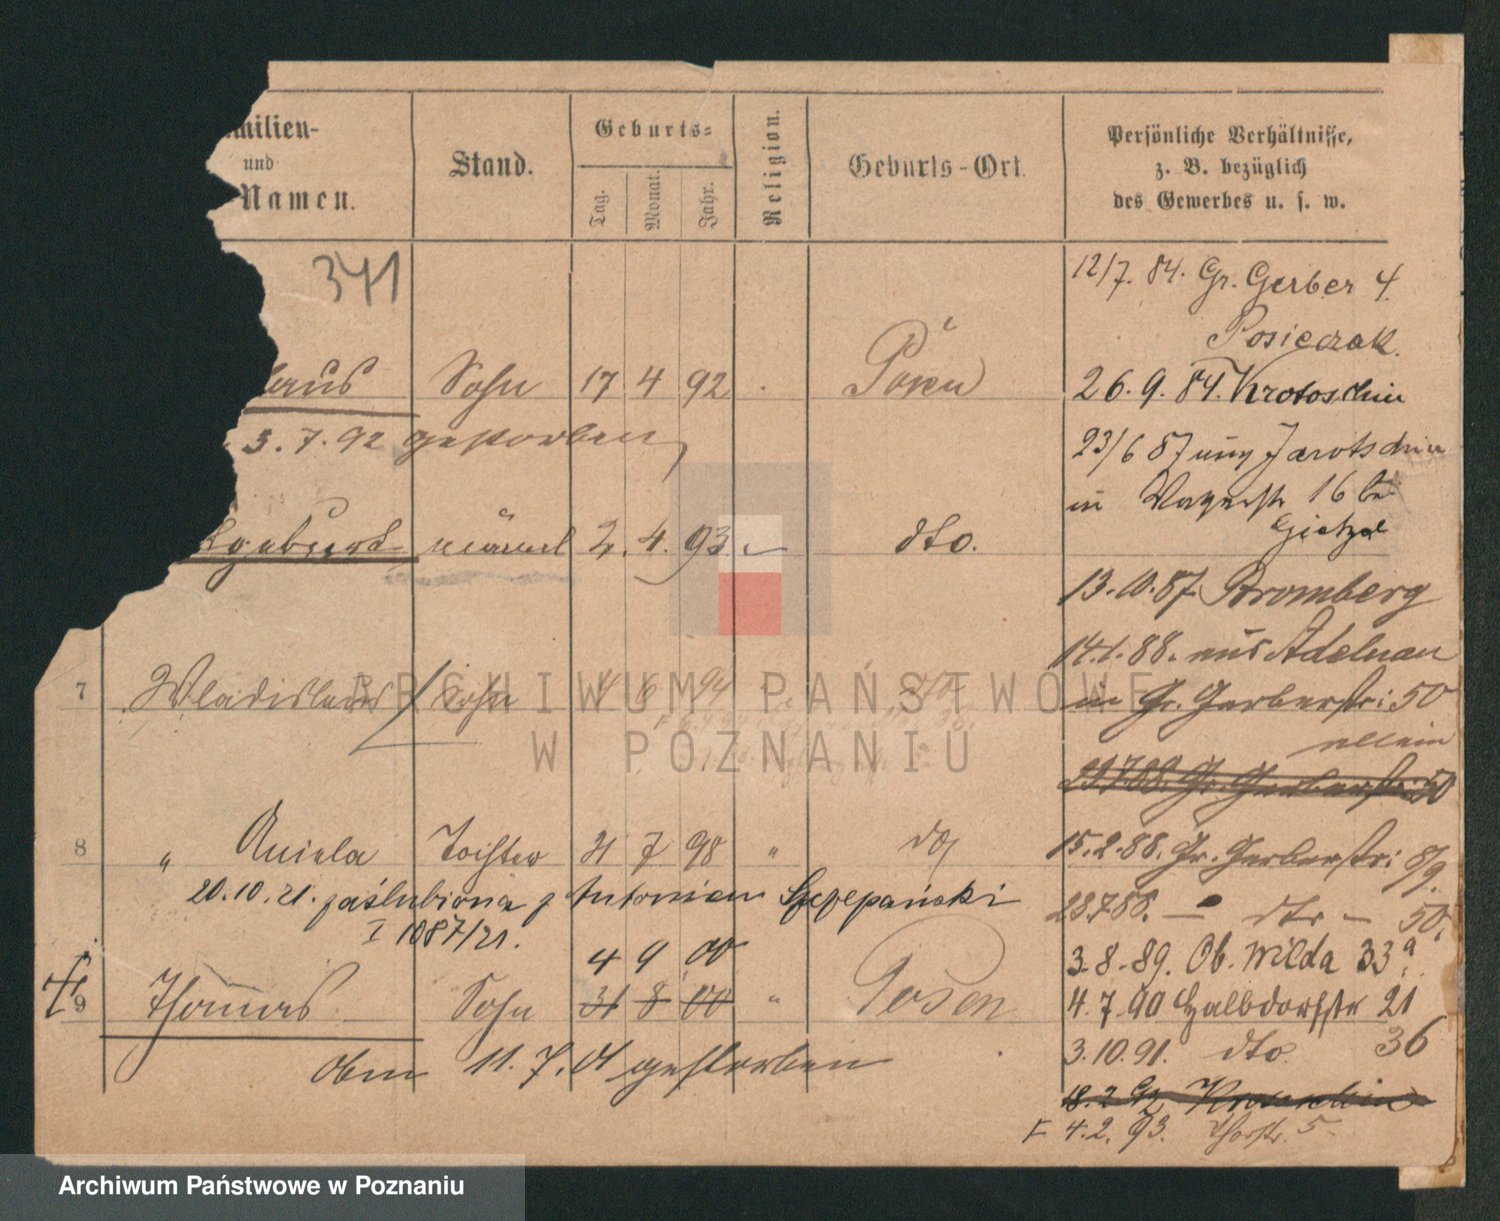 milien-
und
Namen.
Stand.
Geburts=
Tag.
Monat.
Jahr.
Religion.
Geburts-Ort.
Persönliche Verhältnisse,
z. B. bezüglich
des Gewerbes u. s. w.
341
aus Sohn 17 4 92 Posen
3. 7. 92 gestorben
2. 4. 93 dto.
7 Wladislaus Sohn 4 6 94 dto
8 " Aniela Tochter 31 7 98 "
20.10.21. zaślubiona z Antonim Szczepański
I 1087/21.
4 9 00
9 Thomas Sohn 31 8 00 " Posen
11.7.01 gestorben
12/7. 84. Gr. Gerber 4.
Posieczak.
26. 9. 84. Krotoschin
23/6 87 Jarotschin
in 16 bei
13.10.87. Bromberg
14.1.88. aus Adelnau
in Gr. Gerberstr: 50
allein
29.7.88. Gr. Gerberstr: 50
15.2.88. Gr. Gerberstr: 8/9.
28.7.88. — dto — 50.
3.8.89. Ob. Wilda 33a.
4.7.90 Halbdorfstr 21
3.10.91. dto. 36
18.2.92 Krotoschin
4.2.93. Thorstr. 5
ARCHIWUM PAŃSTWOWE
W POZNANIU
Archiwum Państwowe w Poznaniu